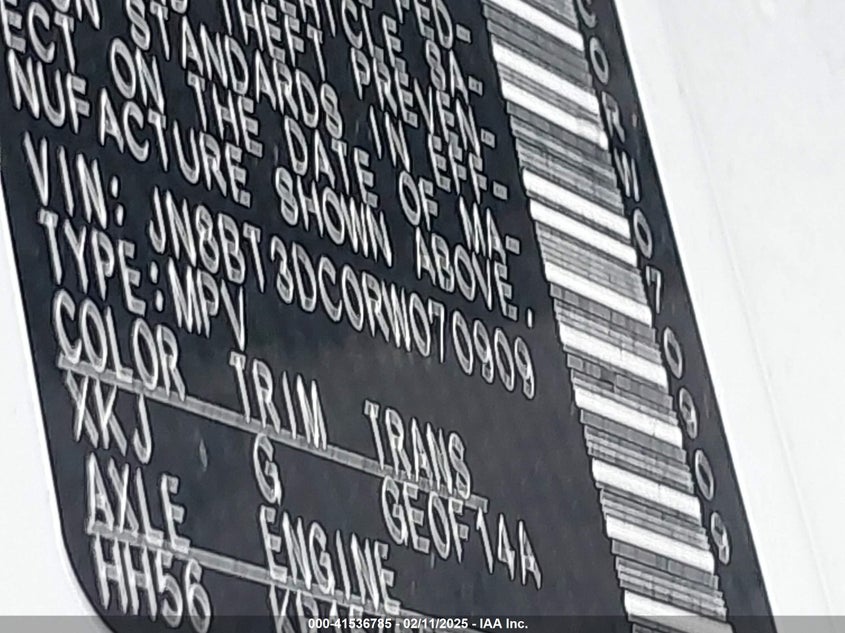 THEFT PREVEN-
ECT STANDARDS IN EFF-
ON THE DATE OF MA-
NUFACTURE SHOWN ABOVE.
VIN: JN8BT3DC0RW070909
TYPE:MPV
COLOR TRIM TRANS
XKJ G GE0F14A
AXLE ENGINE
HH56
C0RW070909
000-41536785 - 02/11/2025 - IAA Inc.